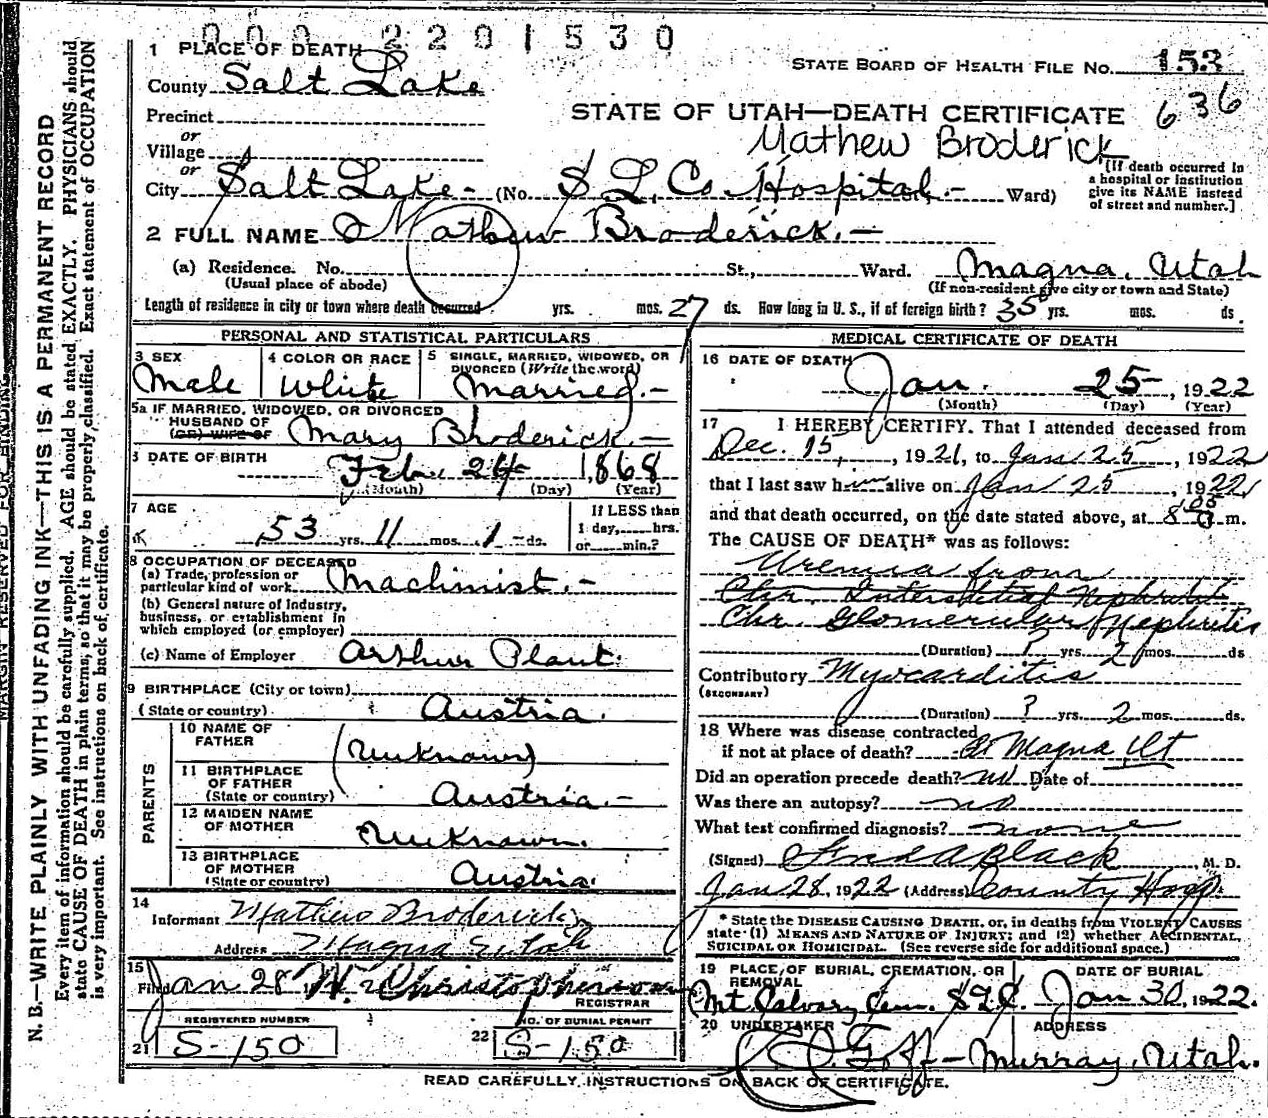 000 2201530
1 PLACE OF DEATH
STATE BOARD OF HEALTH FILE NO. 153
County Salt Lake
STATE OF UTAH—DEATH CERTIFICATE 636
Precinct
Mathew Broderick
or
Village
or
[If death occurred in a hospital or institution give its NAME instead of street and number.]
City Salt Lake - (No. S L. Co. Hospital. - Ward)
2 FULL NAME Mathew Broderick. —
(a) Residence. No. St., Ward. Magna, Utah
(Usual place of abode) (If non-resident give city or town and State)
Length of residence in city or town where death occurred yrs. mos. 27 ds. How long in U. S., if of foreign birth? 35 yrs. mos. ds.
PERSONAL AND STATISTICAL PARTICULARS
3 SEX Male
4 COLOR OR RACE White
5 SINGLE, MARRIED, WIDOWED, OR DIVORCED (Write the word) Married. -
5a IF MARRIED, WIDOWED, OR DIVORCED
HUSBAND OF Mary Broderick. —
(OR) WIFE OF
6 DATE OF BIRTH Feb. 24 1868
(Month) (Day) (Year)
7 AGE 53 yrs. 11 mos. 1 ds.
If LESS than 1 day, hrs. or min.?
8 OCCUPATION OF DECEASED
(a) Trade, profession or particular kind of work Machinist. -
(b) General nature of Industry, business, or establishment in which employed (or employer)
(c) Name of Employer Arthur Plant.
9 BIRTHPLACE (City or town)
(State or country) Austria.
PARENTS
10 NAME OF FATHER (Unknown)
11 BIRTHPLACE OF FATHER (State or country) Austria. -
12 MAIDEN NAME OF MOTHER Unknown.
13 BIRTHPLACE OF MOTHER (State or country) Austria.
14 Informant Mathew Broderick
Address Magna Utah
15 Filed Jan 28 REGISTRAR
REGISTERED NUMBER
21 S-150
NO. OF BURIAL PERMIT
22 S-150
MEDICAL CERTIFICATE OF DEATH
16 DATE OF DEATH
Jan. 25 - , 1922
(Month) (Day) (Year)
17 I HEREBY CERTIFY. That I attended deceased from
Dec. 15, , 1921, to Jan 25 , 1922
that I last saw him alive on Jan 25 , 1922
and that death occurred, on the date stated above, at m.
The CAUSE OF DEATH* was as follows:
Uremia from
Chr. Interstitial Nephritis
Chr. Glomerular Nephritis
(Duration) ? yrs. 2 mos. ds
Contributory Myocarditis
(SECONDARY)
(Duration) ? yrs. 2 mos. ds.
18 Where was disease contracted
if not at place of death? At Magna Ut
Did an operation precede death? no Date of
Was there an autopsy? no
What test confirmed diagnosis? none
(Signed) Black , M. D.
Jan 28, 1922 (Address) County Hosp.
* State the DISEASE CAUSING DEATH, or, in deaths from VIOLENT CAUSES
state (1) MEANS AND NATURE OF INJURY; and (2) whether ACCIDENTAL,
SUICIDAL OR HOMICIDAL. (See reverse side for additional space.)
19 PLACE OF BURIAL, CREMATION, OR REMOVAL
Mt Calvary Cem. S L C.
DATE OF BURIAL
Jan 30, 1922.
20 UNDERTAKER Goff - ADDRESS Murray, Utah.
READ CAREFULLY INSTRUCTIONS ON BACK OF CERTIFICATE.
MARGIN RESERVED FOR BINDING
N. B.—WRITE PLAINLY WITH UNFADING INK—THIS IS A PERMANENT RECORD
Every item of information should be carefully supplied. AGE should be stated EXACTLY. PHYSICIANS should
state CAUSE OF DEATH in plain terms, so that it may be properly classified. Exact statement of OCCUPATION
is very important. See instructions on back of certificate.